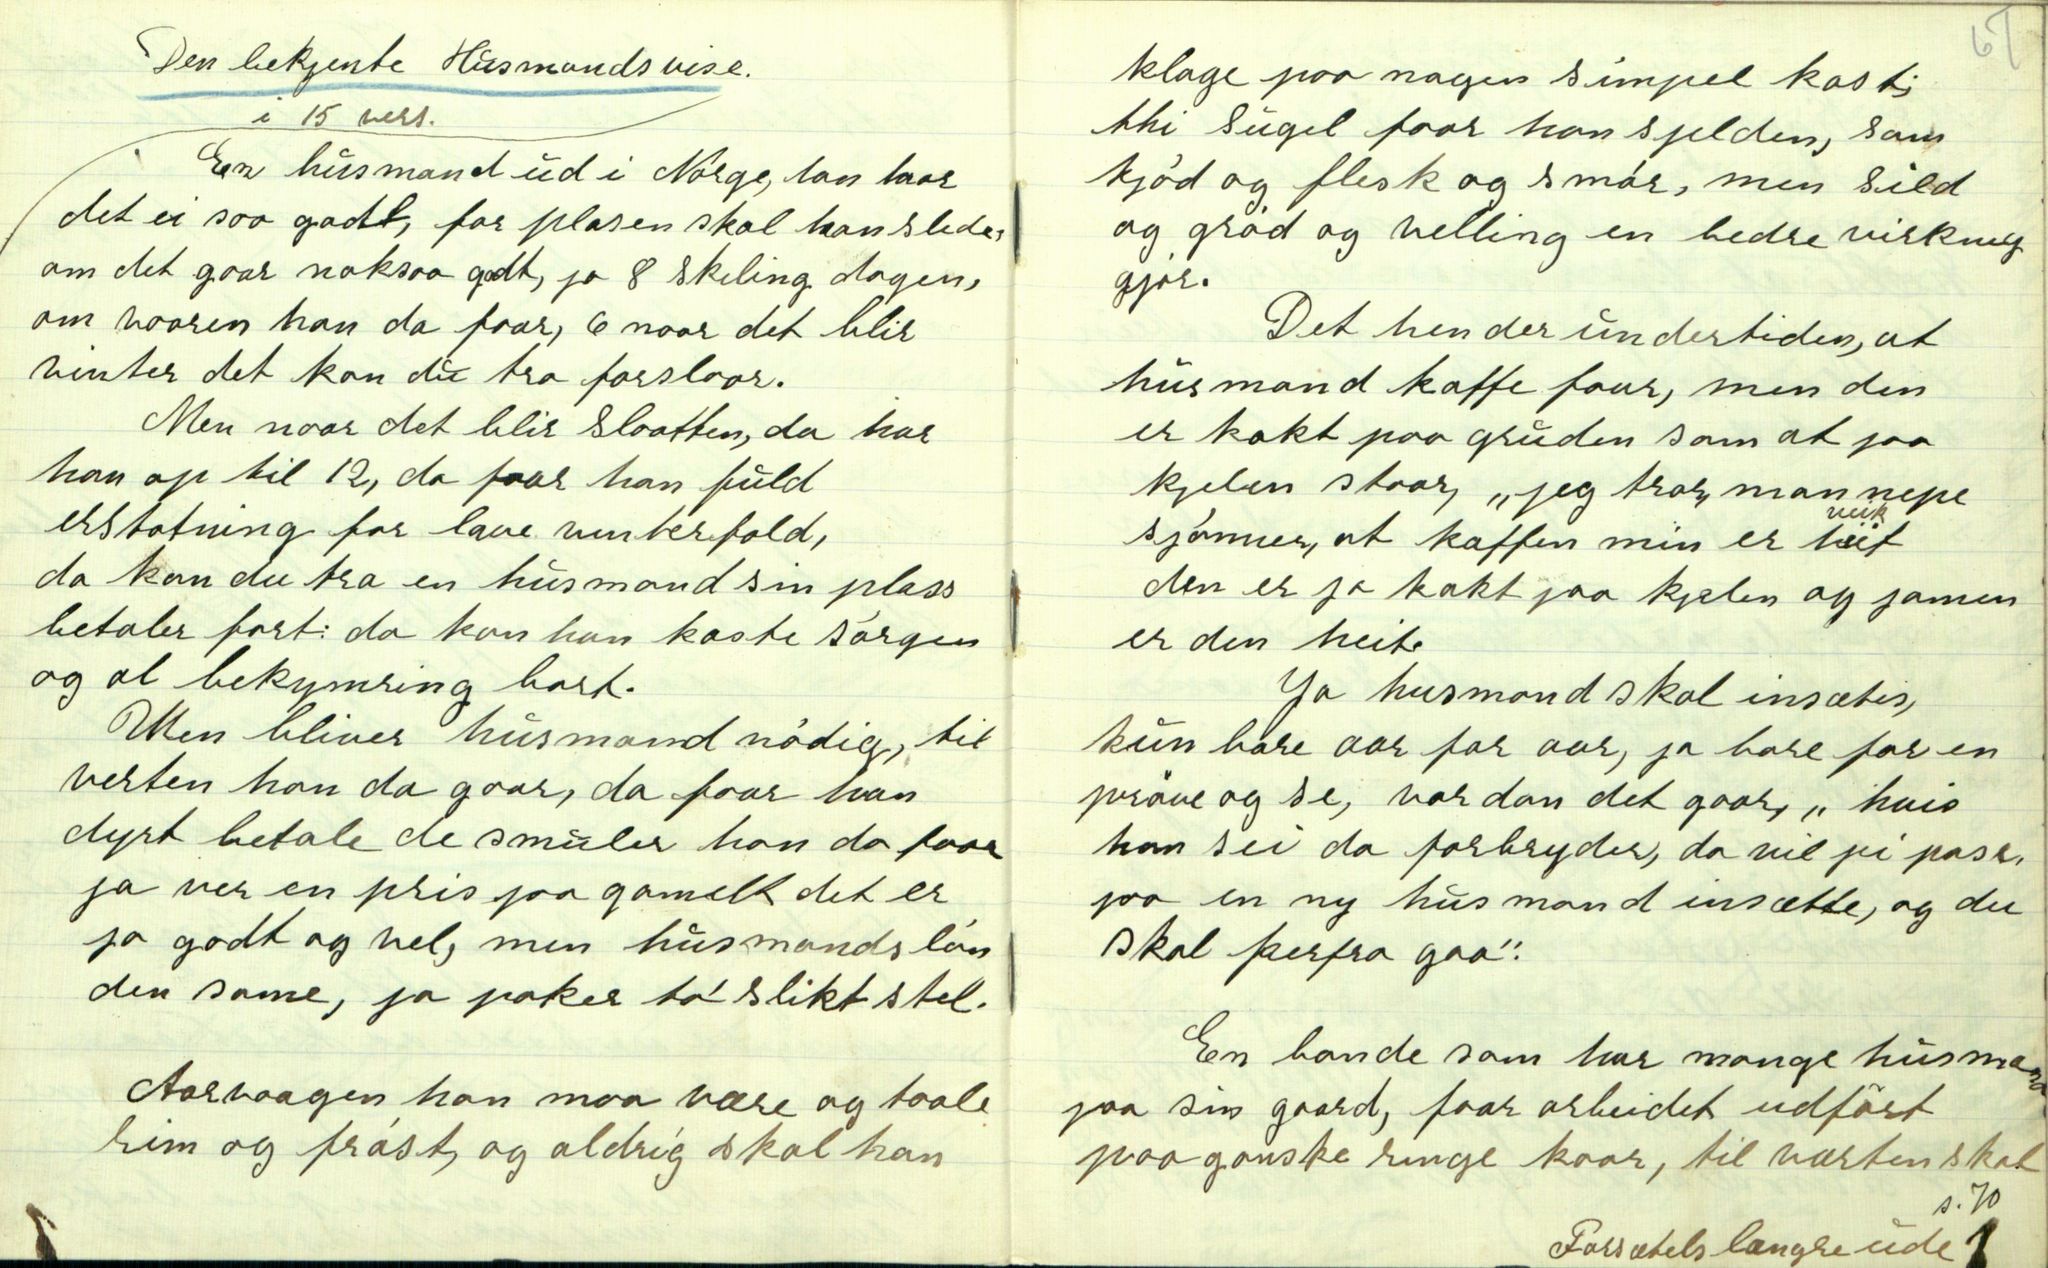 Den bekjente Husmandsvise.
i 15 vers.
En husmand ud i Norge, han haar
det ei saa godt, for plasen skal han slede,
om det gaar noksaa godt, ja 8 skeling dagen,
om vaaren han da faar, 6 naar det blir
vinter det kan du tro forslaar.
Men naar det blir Slaatten, da har
han op til 12, da faar han fuld
erstatning for lave vinterfold,
da kan du tro en husmand sin plass
betaler fort: da kan han kaste sorgen
og al bekymring bort.
Men bliver husmand nödig, til
verten han da gaar, da faar han
dyrt betale de smuler han da faar
ja ver en pris paa gamelt det er
ja godt og vel, men husmands lön
den same, ja paker ta' slikt stel.
Aarvaagen han maa være og taale
rim og fråst, og aldrig skal han
67
klage paa nogen simpel kost;
thi Sugel faar han sjelden, som
kjöd og flesk og smör, men sild
og gröd og velling en bedre virkning
gjör.
Det hender undertiden, at
husmand kaffe faar, men den
er kokt paa gruden som at paa
kjelen staar, „jeg tror, man nepe
veik
sjönner, at kaffen min er
den er jo kokt paa kjelen og jamen
er den heit.
Ja husmand skal insætes,
kun bare aar for aar, ja bare for en
pröve og se, vordan det gaar, „hvis
han sei da forbryder, da vil pi pass.
paa en ny husmand insætte, og du
skal herfra gaa".
En bonde som har mange husmand
paa sin gaard, faar arbeidet udfört
paa ganske ringe kaar, til værten skal
s. 70
Forsætels længre ude